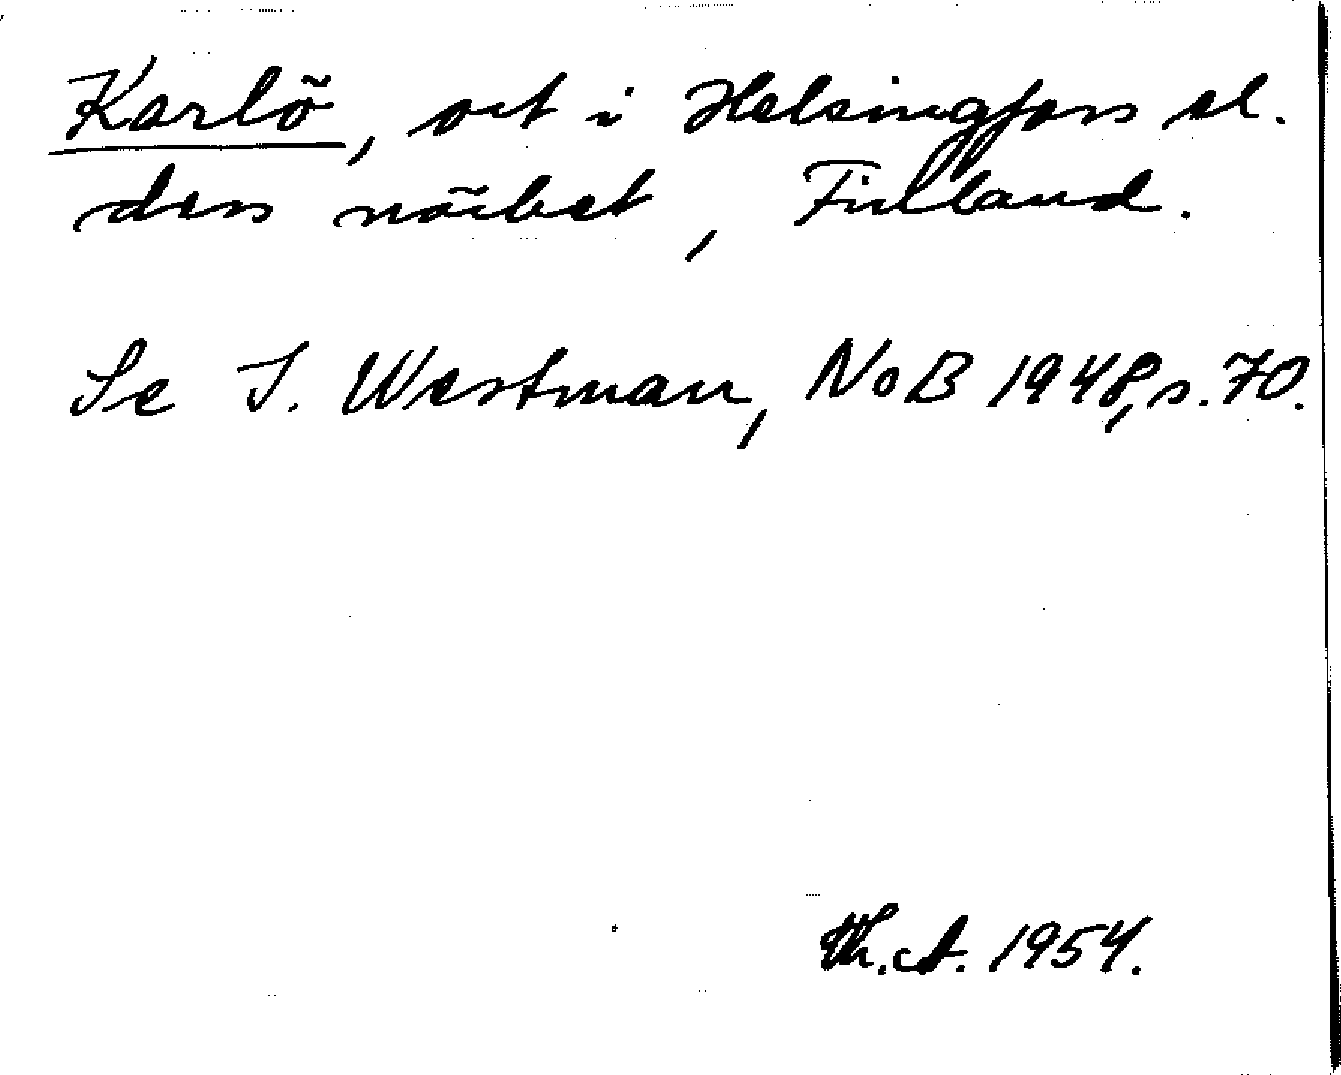 Karlö, ort i Helsingfors el.
dess närhet, Finland.
Se I. Westman, NoB 1948, s. 70.
Th. A. 1954.